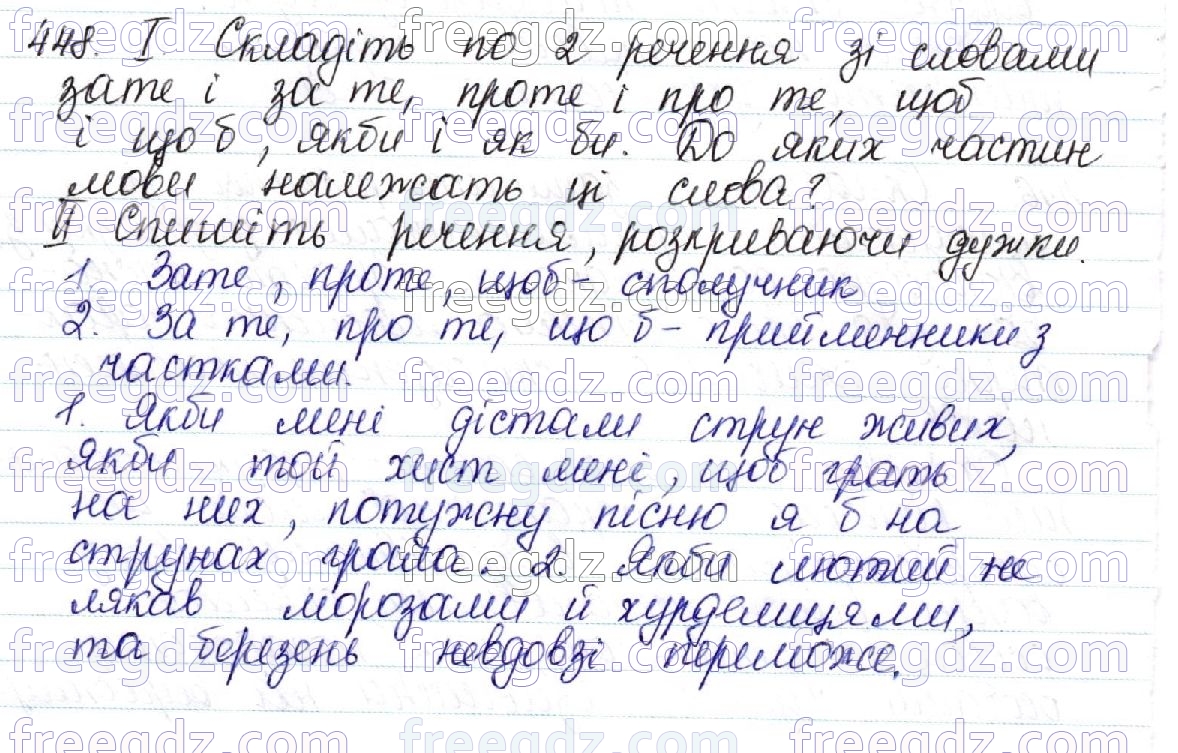 448. I. Складіть по 2 речення зі словами
зате і за те, проте і про те, щоб
і що б, якби і як би. До яких частин
мови належать ці слова?
II Спишіть речення, розкриваючи дужки.
1. Зате, проте, щоб - сполучник
2. За те, про те, що б - прийменники з
частками.
1. Якби мені дістали струн живих,
якби той хист мені, щоб грать
на них, потужну пісню я б на
струнах грала. 2. Якби лютий не
лякав морозами й хурделицями,
та березень невдовзі переможе.
freegdz.com